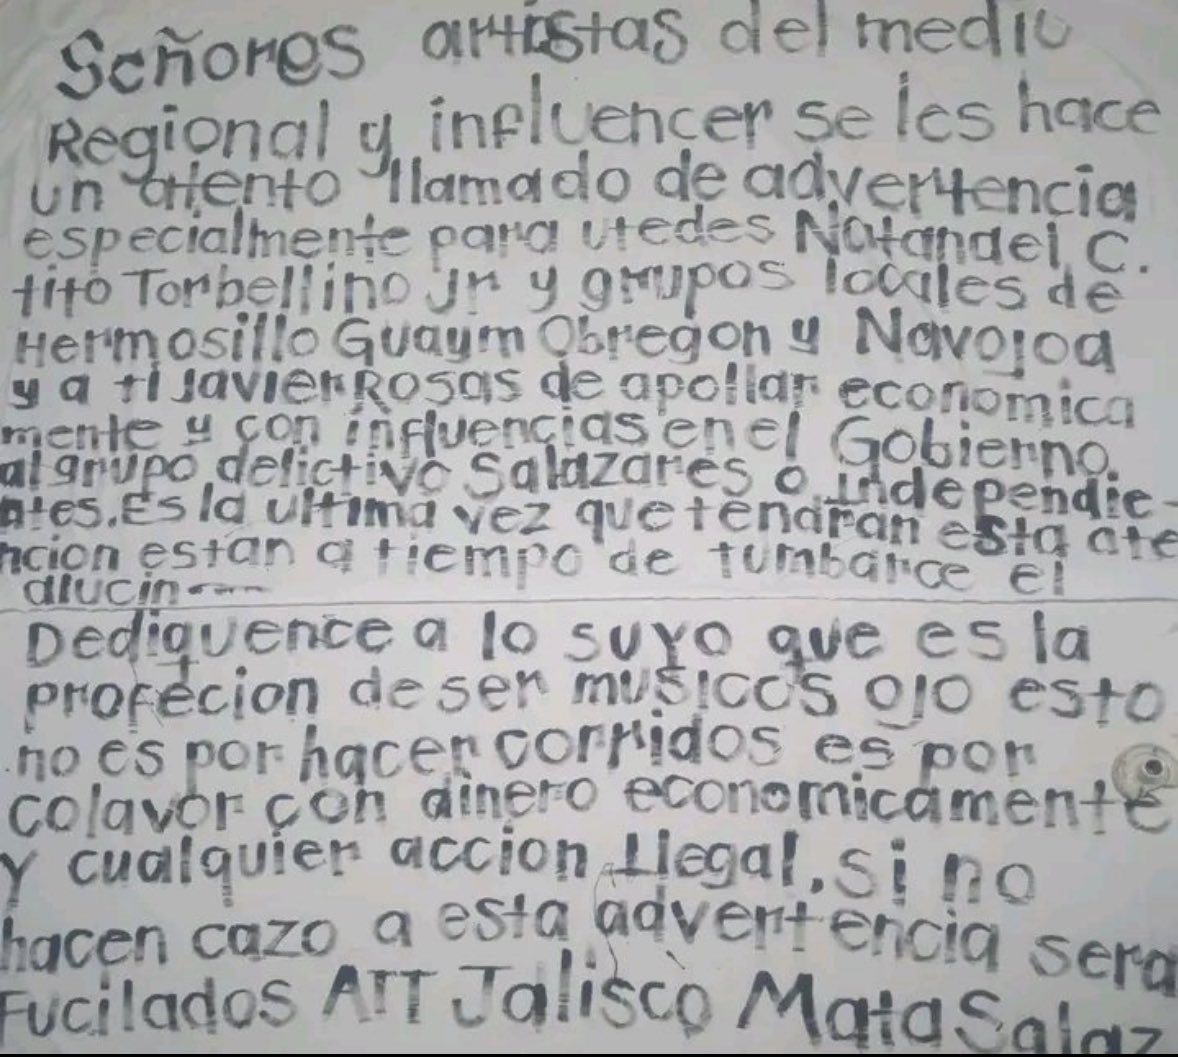 Señores artistas del medio
Regional y influencer se les hace
un atento llamado de advertencia
especialmente para utedes Natandel C.
tito Torbellino Jr y grupos locales de
Hermosillo Guaym Obregon y Navojoa
y a ti Javier Rosas de apollar economica
mente y con influencias en el Gobierno.
al grupo delictivo Salazares o independie-
ntes. Es la ultima vez que tendran esta ate
ncion estan a tiempo de tumbarce el
alucin---
Dediquence a lo suyo que es la
profecion de ser musicos ojo esto
no es por hacer corridos es por
colavor con dinero economicamente
y cualquier accion Ilegal, si no
hacen cazo a esta advertencia sera
Fucilados ATT Jalisco Mata Salaz